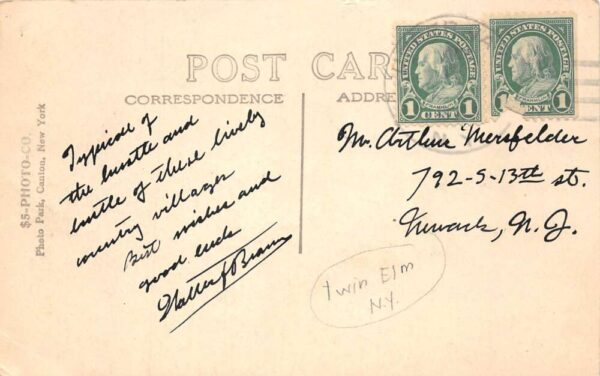 POST CAR
CORRESPONDENCE
ADDRE
$5-PHOTO-CO.
Photo Park, Canton, New York
UNITED STATES POSTAGE
FRANKLIN
1 CENT 1
UNITED STATES POSTAGE
1 CENT 1
Typical of
the hustle and
bustle of these lively
country villages
Best wishes and
good luck
Walter J Braun
Mr. Arthur Mersfelder
792-S-13th st.
Newark, N.J.
Twin Elm
N.Y.